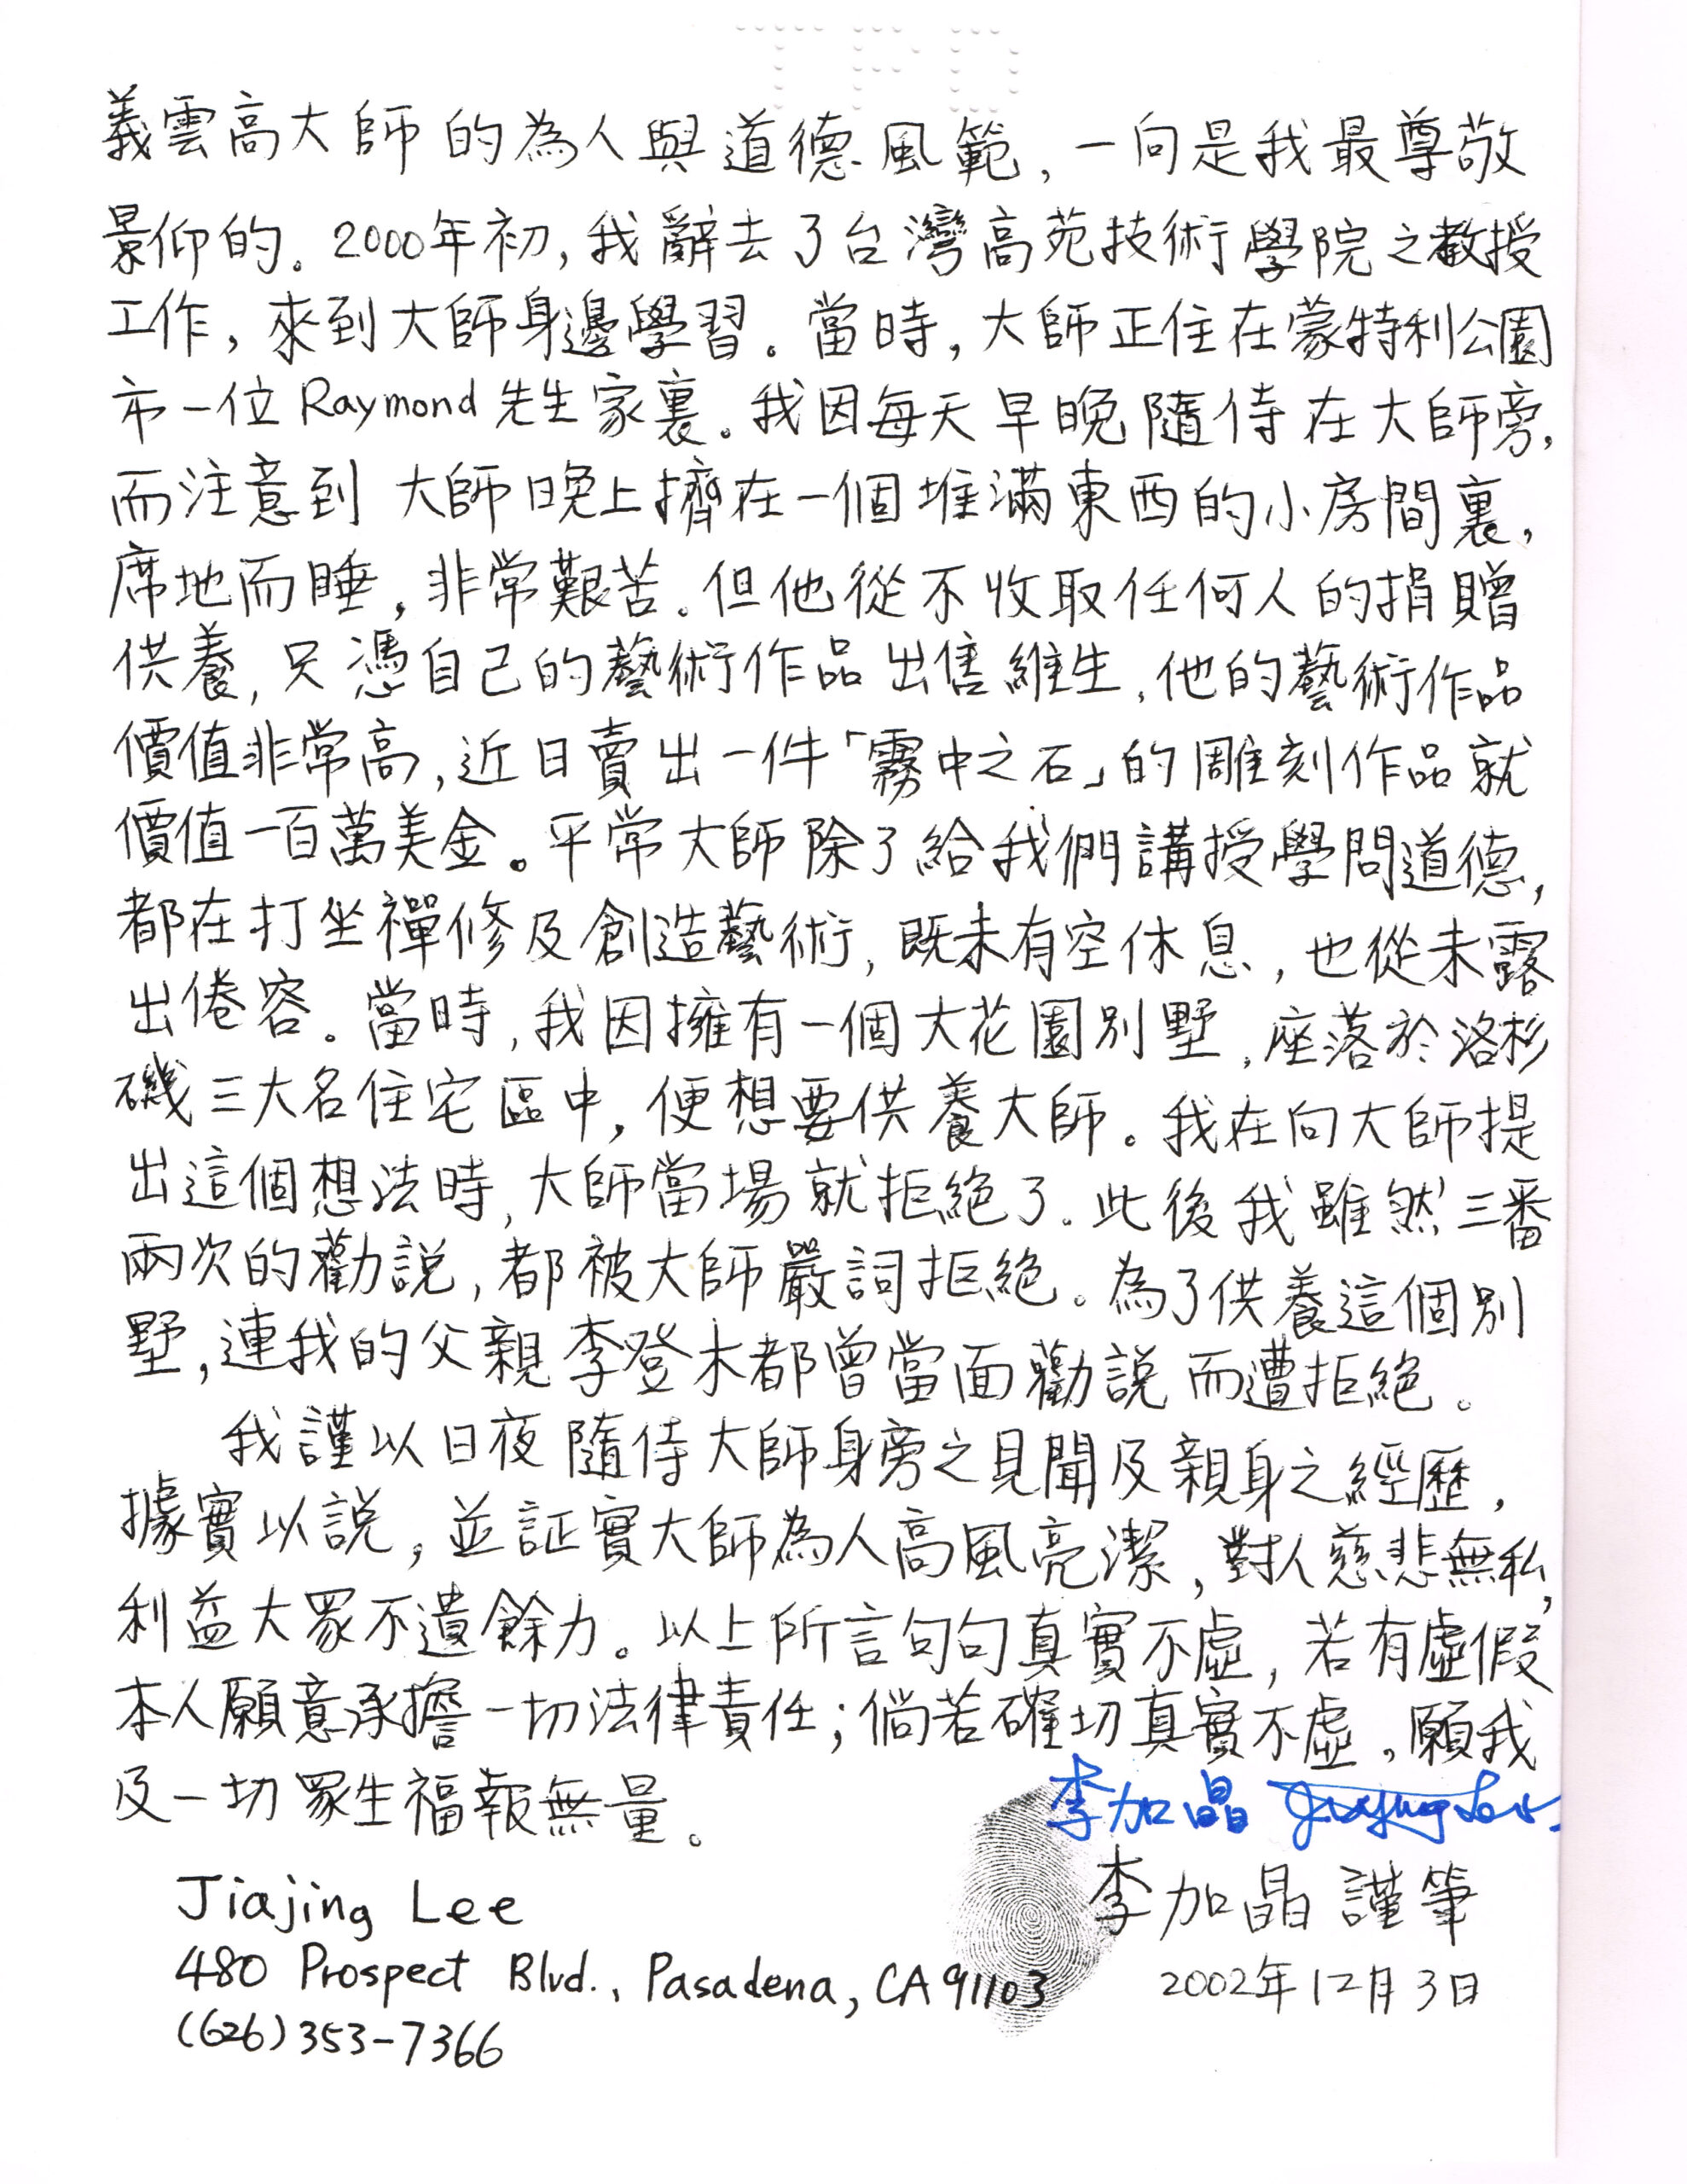 TPD
義雲高大師的為人與道德風範，一向是我最尊敬
景仰的。2000年初，我辭去了台灣高苑技術學院之教授
工作，來到大師身邊學習。當時，大師正住在蒙特利公園
市一位Raymond先生家裏。我因每天早晚隨侍在大師旁，
而注意到大師晚上擠在一個堆滿東西的小房間裏，
席地而睡，非常艱苦。但他從不收取任何人的捐贈
供養，只憑自己的藝術作品出售維生，他的藝術作品
價值非常高，近日賣出一件「霧中之石」的雕刻作品就
價值一百萬美金。平常大師除了給我們講授學問道德，
都在打坐禪修及創造藝術，既未有空休息，也從未露
出倦容。當時，我因擁有一個大花園別墅，座落於洛杉
磯三大名住宅區中，便想要供養大師。我在向大師提
出這個想法時，大師當場就拒絕了。此後我雖然三番
兩次的勸說，都被大師嚴詞拒絕。為了供養這個別
墅，連我的父親李登木都曾當面勸說而遭拒絕。
我謹以日夜隨侍大師身旁之見聞及親身之經歷，
據實以說，並証實大師為人高風亮潔，對人慈悲無私，
利益大眾不遺餘力。以上所言句句真實不虛，若有虛假，
本人願意承擔一切法律責任；倘若確切真實不虛，願我
及一切眾生福報無量。
李加晶 Jiajing Lee
李加晶 謹筆
2002年12月3日
Jiajing Lee
480 Prospect Blvd., Pasadena, CA 91103
(626)353-7366